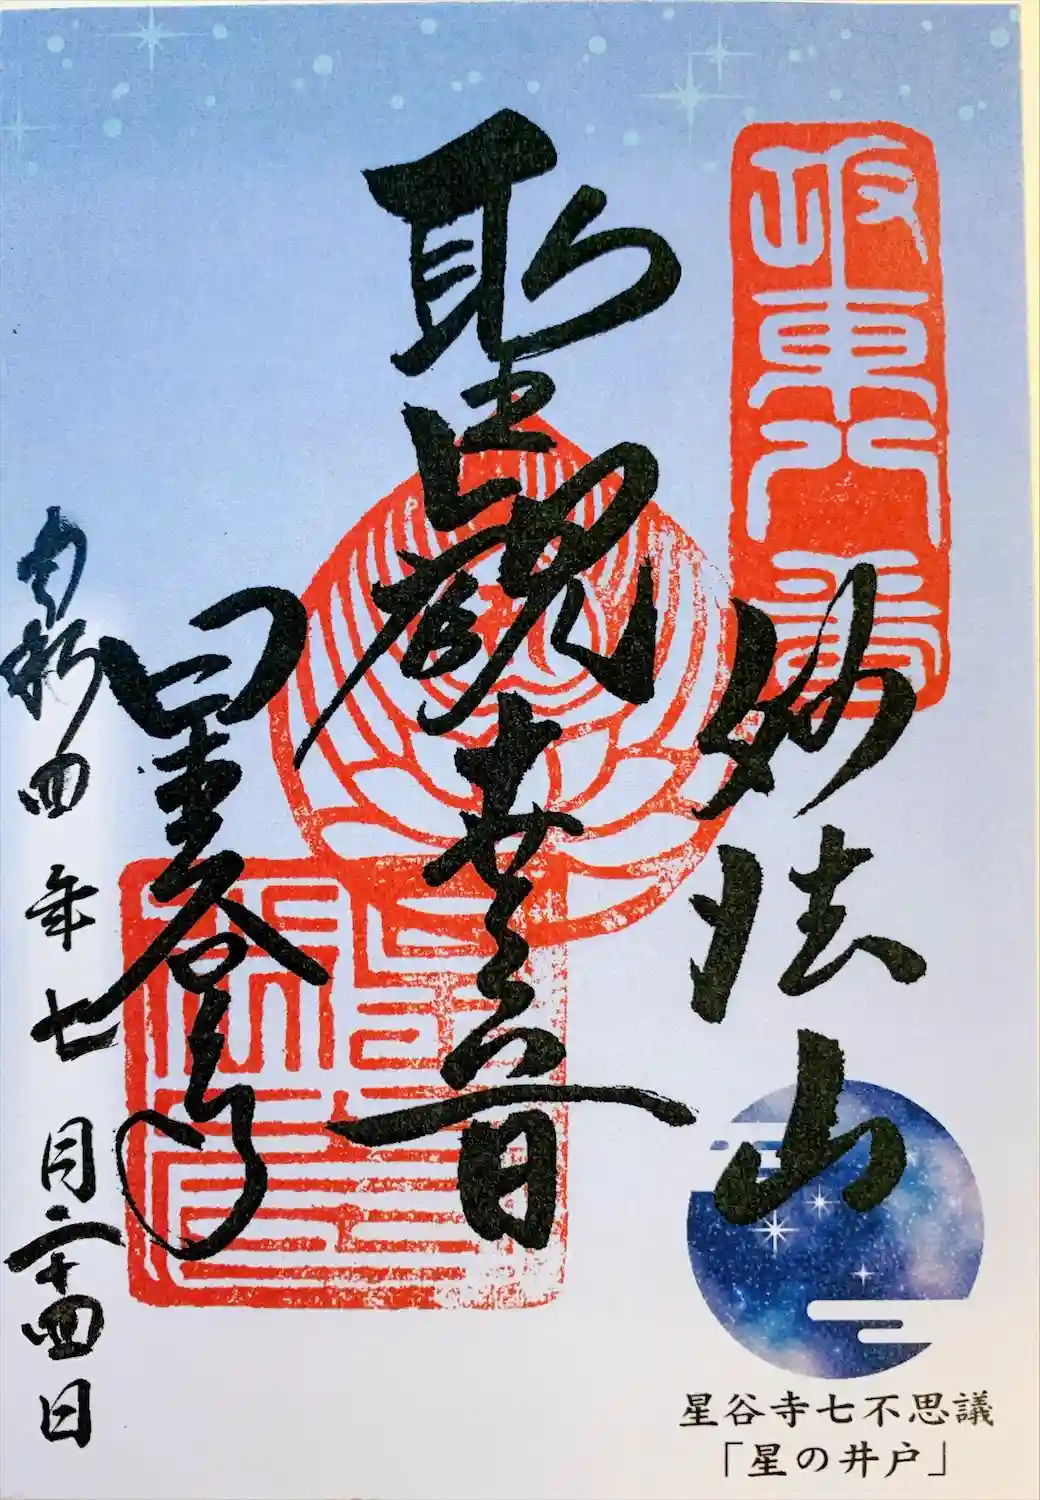 岅東八番
妙法山
聖観世音
星谷寺
令和四年七月二十四日
星谷寺七不思議
「星の井戸」